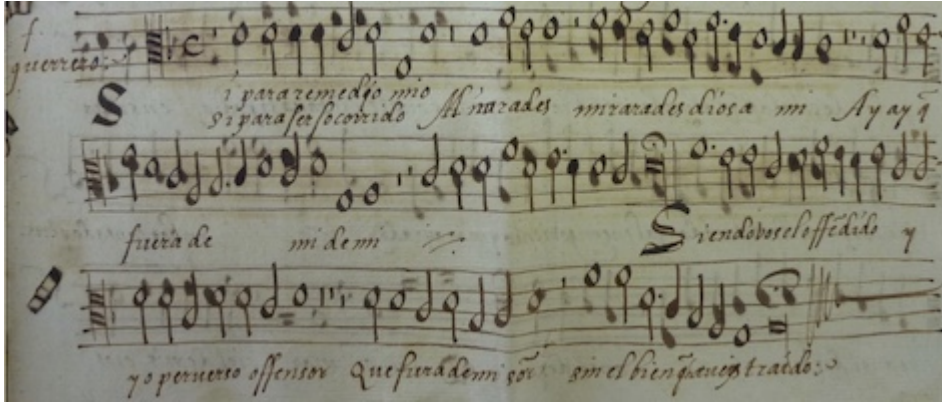 f.
guerrero:
Si para remedio mio
si para ser socorrido Mirarades mirarades dios a mi Ay ay q̃
fuera de mi de mi
Siendo vos el offẽdido y
yo perverso offensor Que fuera de mi sin el bien